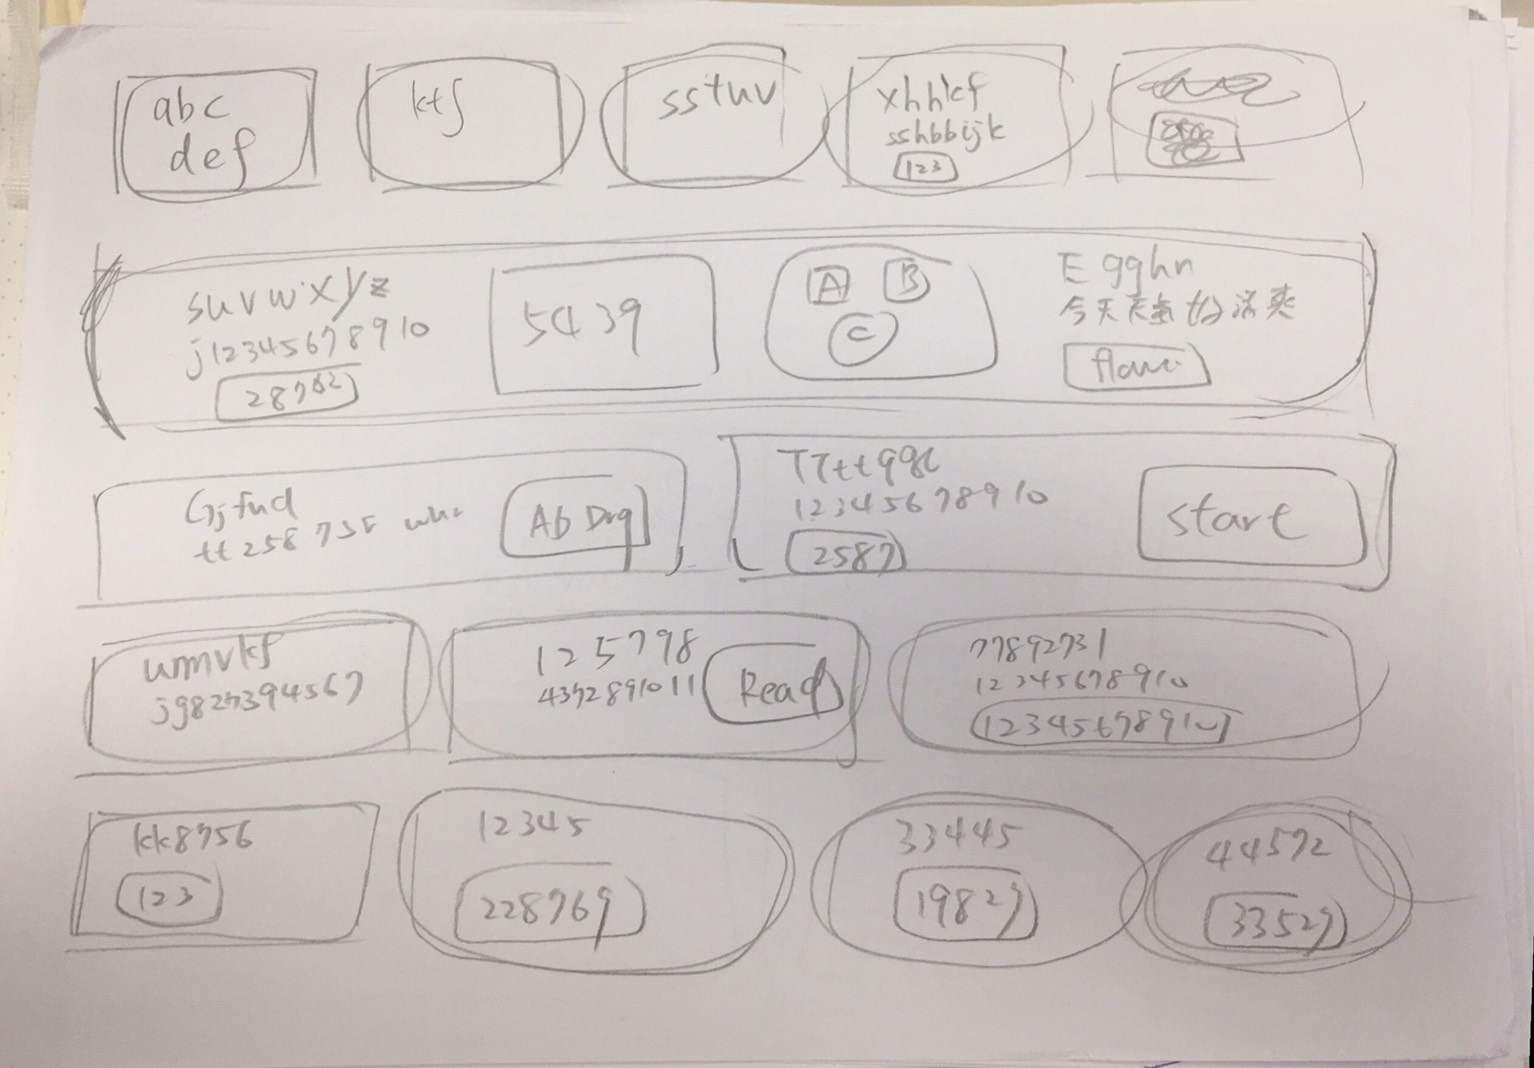 abc
def
ktf
sstuv
xhhkf
sshbbijk
123
suvwxyz
j12345678910
28762
5439
A
B
C
E gghn
今天天氣好涼爽
Gjfnd
tt 258 735
Ab Drg
12345678910
2587
start
umvkf
125798
43728910 11
Read
77892731
12345678910
12345678910
kk8756
123
12345
228769
33445
19827
44572
33527